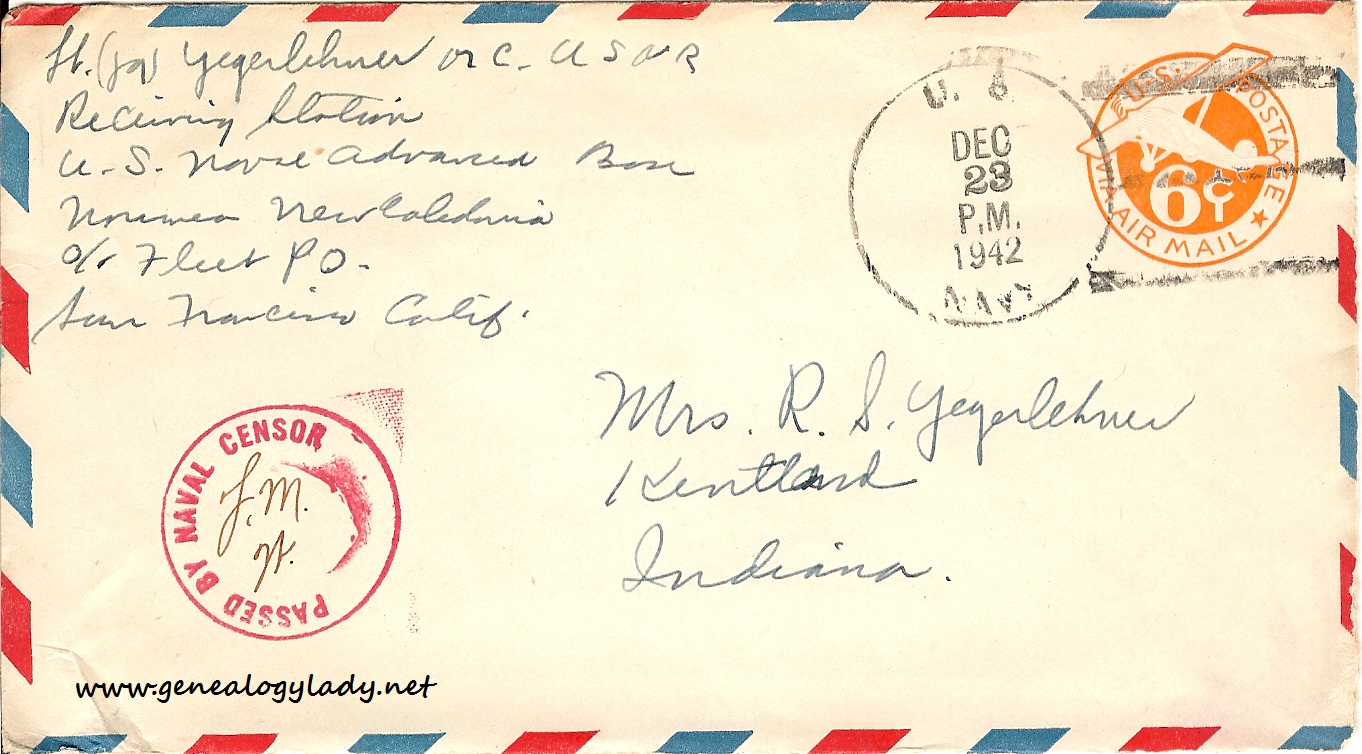 Lt. (jg) Yegerlehner MC USNR
Receiving Station
U.S. Naval Advanced Base
Noumea New Caledonia
c/o Fleet P.O.
San Francisco Calif.
U. S
DEC
23
P.M.
1942
NAVY
U.S. POSTAGE
6¢
VIA AIR MAIL
Mrs. R. S. Yegerlehner
Kentland
Indiana.
PASSED BY NAVAL CENSOR
www.genealogylady.net